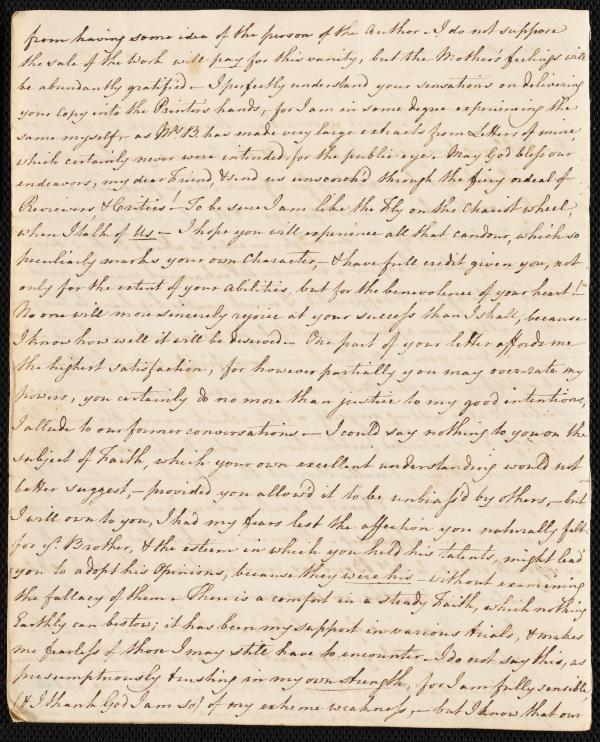 from having some idea of the person of the Author – I do not suppose
the sale of the Work will pay for this vanity, but the Mother's feelings will
be abundantly gratified – I perfectly understand your sensations on delivering
your Copy into the Printer's hands, for I am in some degree experiencing the
same myself, as Mrs B. has made very large extracts from Letters of mine
which certainly never were intended for the public eye. May God bless our
endeavors, my dear Friend, & send us unscorch'd through the fiery ordeal of
Reviewers, & Critics! To be sure I am like the Fly on the Chariot wheel,
when I talk of Us – I hope you will experience all that candour, which so
peculiarly marks your own Character, – & have full credit given you, not
only for the extent of your abilities, but for the benevolence of your heart! –
No one will more sincerely rejoice at your success than I shall, because
I know how well it will be deserved – One part of your letter affords me
the highest satisfaction, for however partially you may over-rate my
powers, you certainly do no more than justice to my good intentions,
I allude to our former conversations – I could say nothing to you on the
subject of Faith, which your own excellent understanding would not
better suggest, – provided you allow'd it to be unbiass'd by others, – but
I will own to you, I had my fears lest the affection you naturally felt
for yr Brother, & the esteem in which you held his talents, might lead
you to adopt his Opinions, because they were his – without examining
the fallacy of them – There is a comfort in a steady Faith, which nothing
Earthly can bestow; it has been my support in various trials, & makes
me fearless of those I may still have to encounter – I do not say this, as
presumptuously trusting in my own strength, for I am fully sensible
(& I thank God I am so) of my extreme weakness, – but I know that our